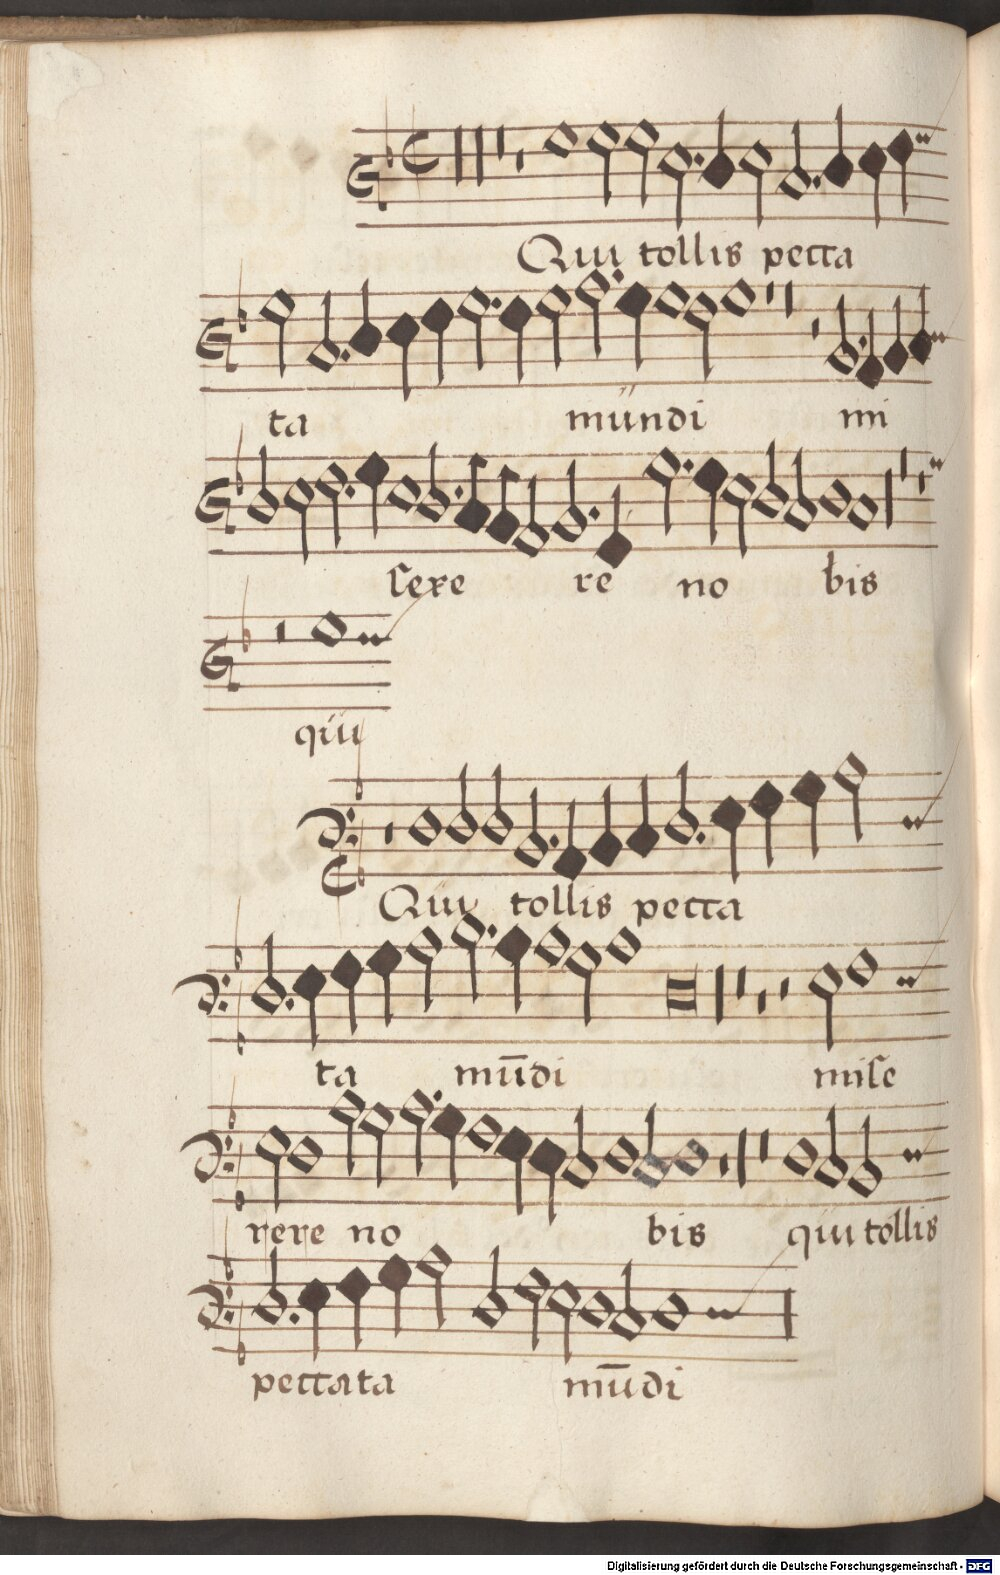 Qui tollis pecca
ta mundi mi
sere re no bis
qui
Qui tollis pecca
ta mūdi mise
rere no bis qui tollis
peccata ta mūdi
Digitalisierung gefördert durch die Deutsche Forschungsgemeinschaft - DFG